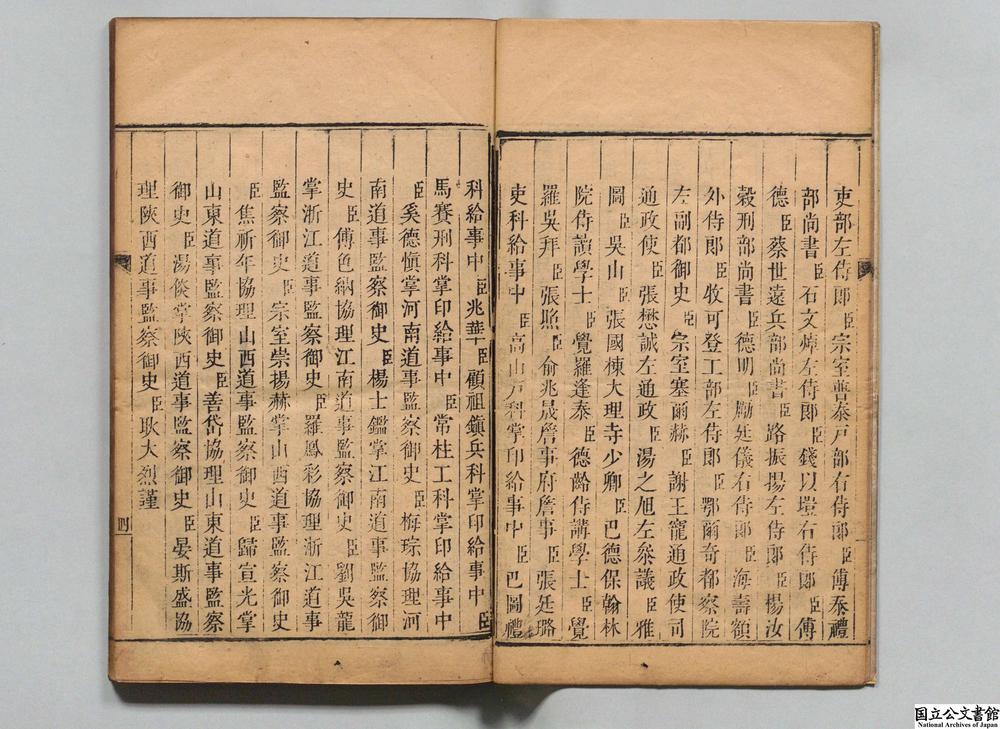 吏部左侍郎臣宗室普泰戸部右侍郎臣傅泰禮
部尚書臣石文焯左侍郎臣錢以塏右侍郎臣傅
德臣蔡世遠兵部尚書臣路振揚左侍郎臣楊汝
穀刑部尚書臣德明臣勵廷儀右侍郎臣海壽額
外侍郎臣牧可登工部左侍郎臣鄂爾奇都察院
左副都御史臣宗室塞爾赫臣謝王寵通政使司
通政使臣張懋誠左通政臣湯之旭左叅議臣雅
圖臣吳山臣張國棟大理寺少卿臣巴德保翰林
院侍讀學士臣覺羅逢泰臣德齡侍講學士臣覺
羅吳拜臣張照臣俞兆晟詹事府詹事臣張廷璐
吏科給事中臣高山戸科掌印給事中臣巴圖禮
科給事中臣兆華臣顧祖鎮兵科掌印給事中臣
馬賽刑科掌印給事中臣常柱工科掌印給事中
臣奚德愼掌河南道事監察御史臣梅琮協理河
南道事監察御史臣楊士鑑掌江南道事監察御
史臣傅色納協理江南道事監察御史臣劉吳龍
掌浙江道事監察御史臣羅鳳彩協理浙江道事
監察御史臣宗室崇揚赫掌山西道事監察御史
臣焦祈年協理山西道事監察御史臣歸宣光掌
山東道事監察御史臣善岱協理山東道事監察
御史臣湯倓掌陜西道事監察御史臣晏斯盛協
理陜西道事監察御史臣耿大烈謹
四
国立公文書館
National Archives of Japan